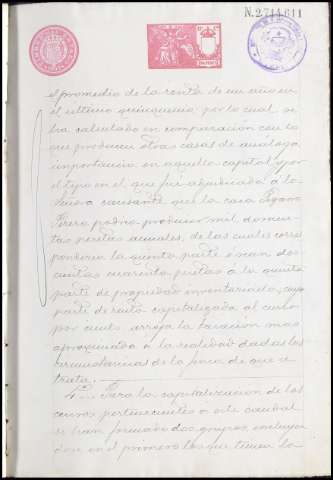 N.2.714.611
el promedio de la renta de un año en
el ultimo quinquenio por lo cual se
ha calculado en comparacion con lo
que producen otras casas de analoga
importancia en aquella capital y por
el tipo en el que fué adjudicada á la
causante que la casa
podria producir mil doscien-
tas pesetas anuales, de las cuales corres
ponderia la quinta parte ó sean dos
cientas cuarenta pesetas á la quinta
parte de propiedad inventariada, cuya
parte de renta capitalizada al cinco
por ciento arroja la tasacion mas
aproximada á la realidad dadas las
circunstancias de la finca de que se
trata.
4º Para la capitalizacion de los
censos pertenecientes á este caudal
se han formado dos grupos, incluyen
dose en el primero los que tienen la